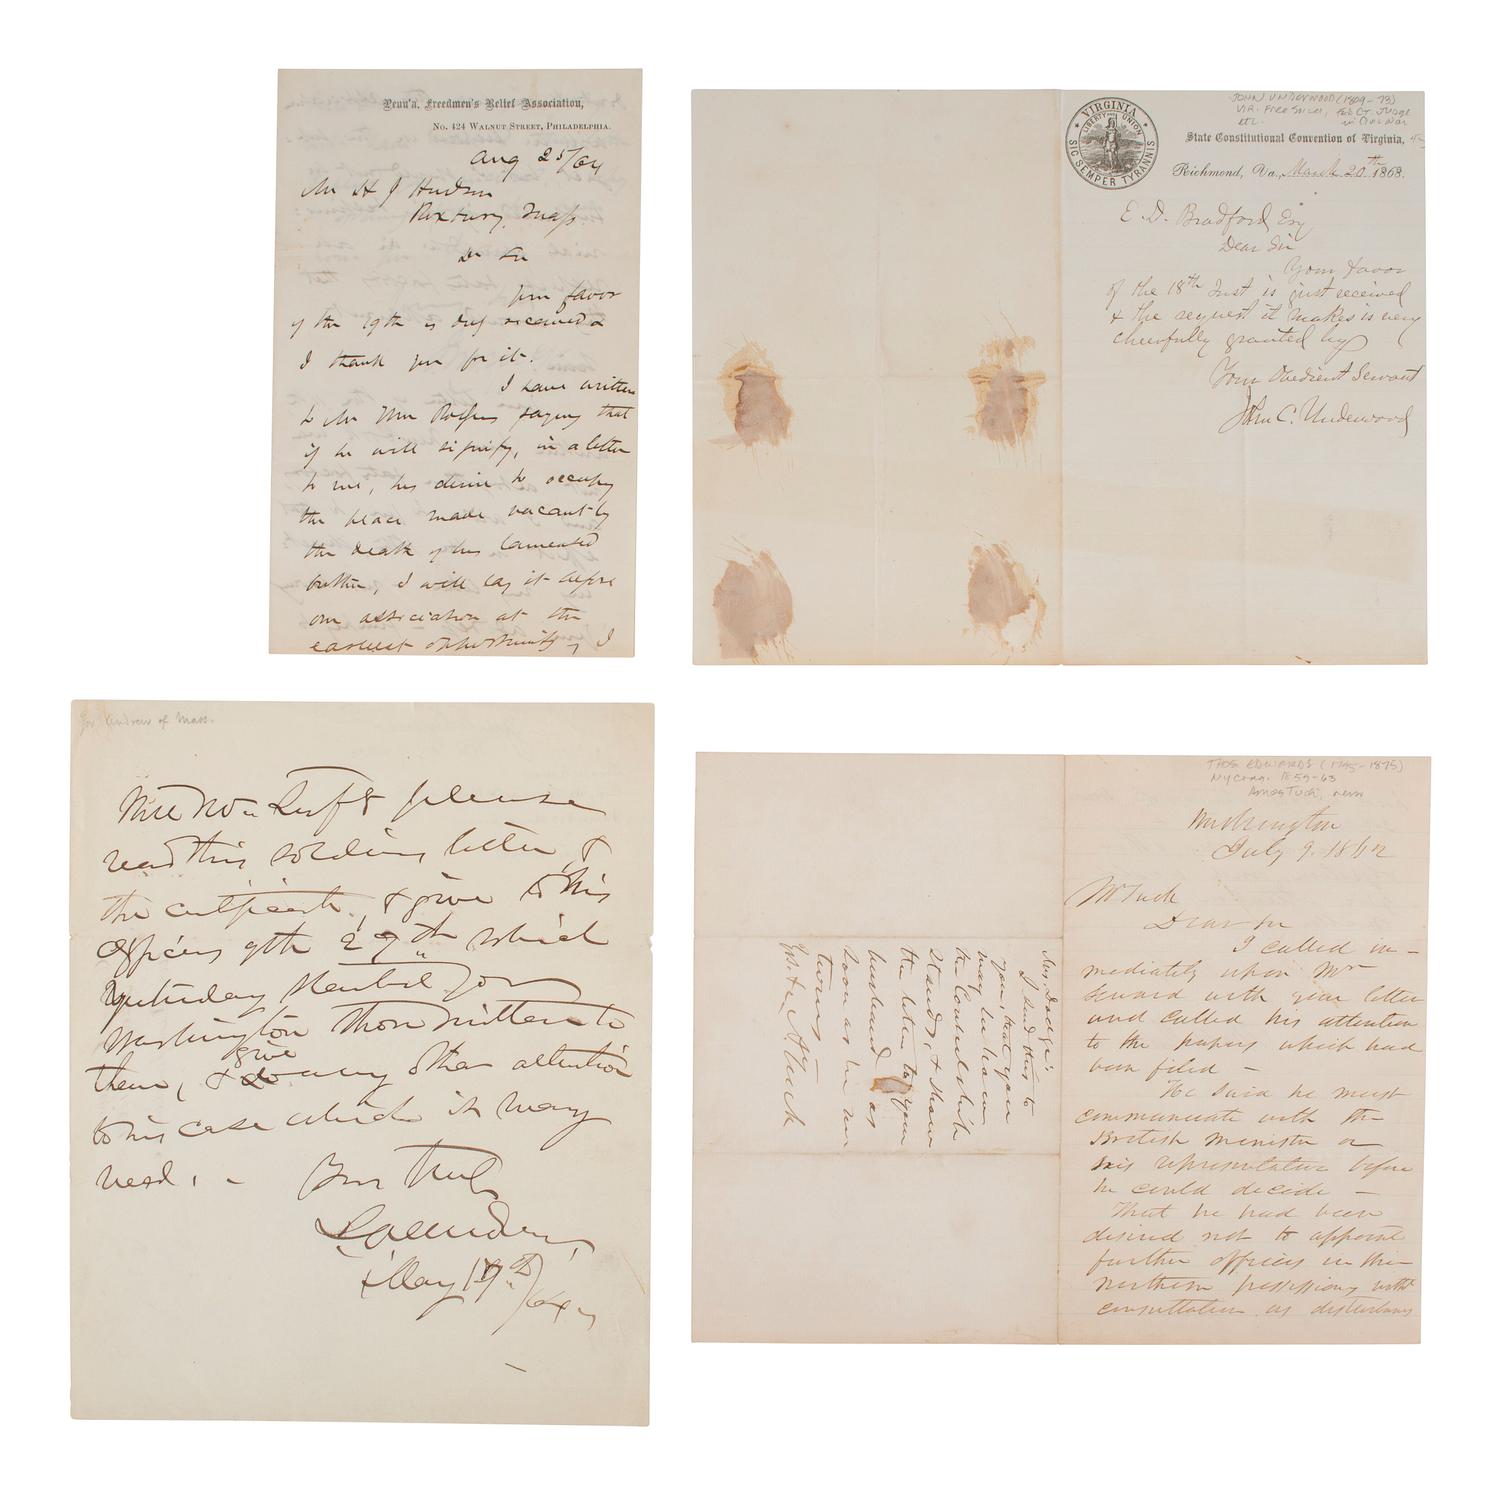 Penn'a. Freedmen's Relief Association,
No. 424 Walnut Street, Philadelphia.
Aug 25/64
Mr H J Hudson
Roxbury, Mass.
Dr Sir
your favor
of the 19th is duly received &
I thank you for it.
I have written
to Mr Wm Rogers saying that
if he will signify, in a letter
to me, his desire to occupy
the place made vacant by
the death of his lamented
brother, I will lay it before
our association at the
earliest opportunity, I
VIRGINIA
LIBERTY AND UNION
SIC SEMPER TYRANNIS
JOHN UNDERWOOD (1809-73)
VIR. Free Soiler, Fed Ct Judge
etc. in Civil War
State Constitutional Convention of Virginia,
Richmond, Va., March 20th 1868.
E. D. Bradford Esq
Dear Sir
Your favor
of the 18th Inst is just received
& the request it makes is very
cheerfully granted by
Your Obedient Servant
John C. Underwood
Gov. Andrew of Mass.
Will please
read this soldiers letter &
the & give to his
officers 9th 29th which
yesterday started for
Washington those written to
them, & give any other attention
to his case which it may
need. -
Yours truly
May 19th/64
THOS EDWARDS (1795-1875)
NY Cong. 1859-63
Amos Tuck, recn
Washington
July 9. 1862
Mr Tuck
Dear Sir
I called im-
mediately upon Mr
Seward with your letter
and called his attention
to the papers which had
been filed -
He said he must
communicate with the
British minister or
his representative before
he could decide -
That he had been
desired not to appoint
further officers in the
northern possessions without
consultation as disturbing
Mrs. Dodge:
I send this to
you, that you
may see how
the
stands, & show
the letter to your
husband as
soon as he re
turns
A Tuck